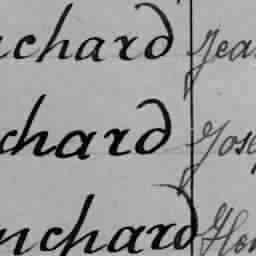 chard Jea
chard Jose
nchard Hen